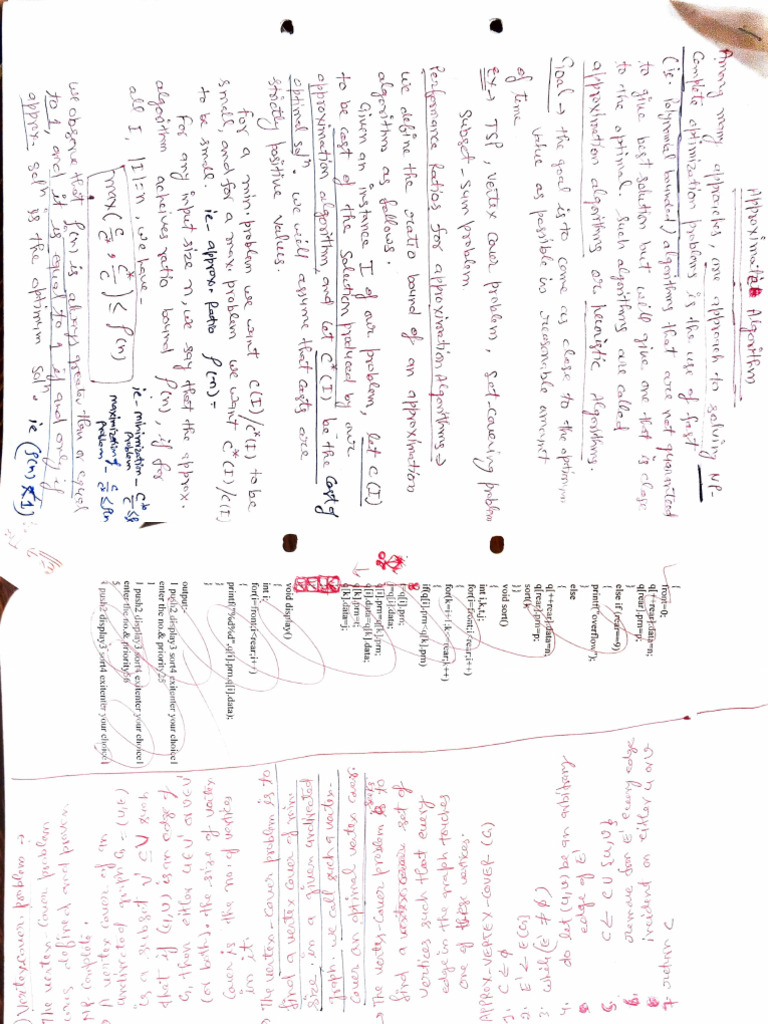 Approximate Algorithm
Among many approaches, one approach to solving NP-
Complete optimization problems is the use of fast
(ie. Polynomial bounded) algorithms that are not guaranteed
to give best solution but will give one that is close
to the optimal. Such algorithms are called
approximation algorithms or heuristic Algorithms.
Goal → the goal is to come as close to the optimum
value as possible in reasonable amount
of time
Ex → TSP, vertex cover problem, set-covering problem
Subset-sum problem
Performance Ratios for approximation Algorithms →
we define the ratio bound of an approximation
algorithm as follows.
Given an instance I of our problem, let C(I)
to be cost of the solution produced by our
approximation algorithm, and let C*(I) be the cost of
optimal solⁿ. we will assume that costs are
strictly positive values.
for a min. problem we want C(I)/C*(I) to be
small, and for a max. problem we want C*(I)/C(I)
to be small. ie- approx. Ratio ρ(n) =
for any input size n, we say that the approx.
algorithm acheives ratio bound ρ(n), if for
all I, |I|=n, we have-
max(C/C*, C*/C) ≤ ρ(n)
ie- minimization -
Problem
maximization -
Problem
we observe that ρ(n) is always greater than or equal
to 1, and it is equal to 1 if and only if
approx. solⁿ is the optimum solⁿ. ie
{
front=0;
q[++rear].data=n;
q[rear].prn=p;
}
else if (rear==9)
{
printf("overflow");
}
else
{
q[++rear].data=n;
q[rear].prn=p;
sort();
}
void sort()
{
int i,k,t,j;
for(i=front;i<rear;i++)
{
for(k=i+1;k<=rear;k++)
{
if(q[i].prn>q[k].prn)
{
t=q[i].prn;
j=q[i].data;
q[i].prn=q[k].prn;
q[i].data=q[k].data;
q[k].prn=t;
q[k].data=j;
void display()
{
int i;
for(i=front;i<rear;i++)
{
printf("%d%d",q[i].prn,q[i].data);
}
}
output:-
1 push2 display3 sort4 exitenter your choice1
enter the no.& priority25
1 push2 display3 sort4 exitenter your choice1
enter the no.& priority56
1 push2 display3 sort4 exitenter your choice1
Vertex cover problem →
The vertex cover problem
was defined and proven
NP complete.
→ A vertex cover of an
undirected graph G = (V,E)
is a subset V' ⊆ V such
that if (u,v) is an edge of
G, then either u∈V' or v∈V'
(or both). the size of vertex
cover is the no. of vertices
in it.
→ The vertex-cover problem is to
find a vertex cover of min.
size in a given undirected
graph. we call such a vertex-
cover an optimal vertex cover.
→ The vertex-cover problem is to
find a set of
vertices such that every
edge in the graph touches
one of these vertices.
APPROX-VERTEX-COVER (G)
1. C ← φ
2. E' ← E(G)
3. while (E' ≠ φ)
4. do let (u,v) be an arbitrary
edge of E'
5. C ← C ∪ {u,v}
6. Remove from E' every edge
incident on either u or v
7. return C